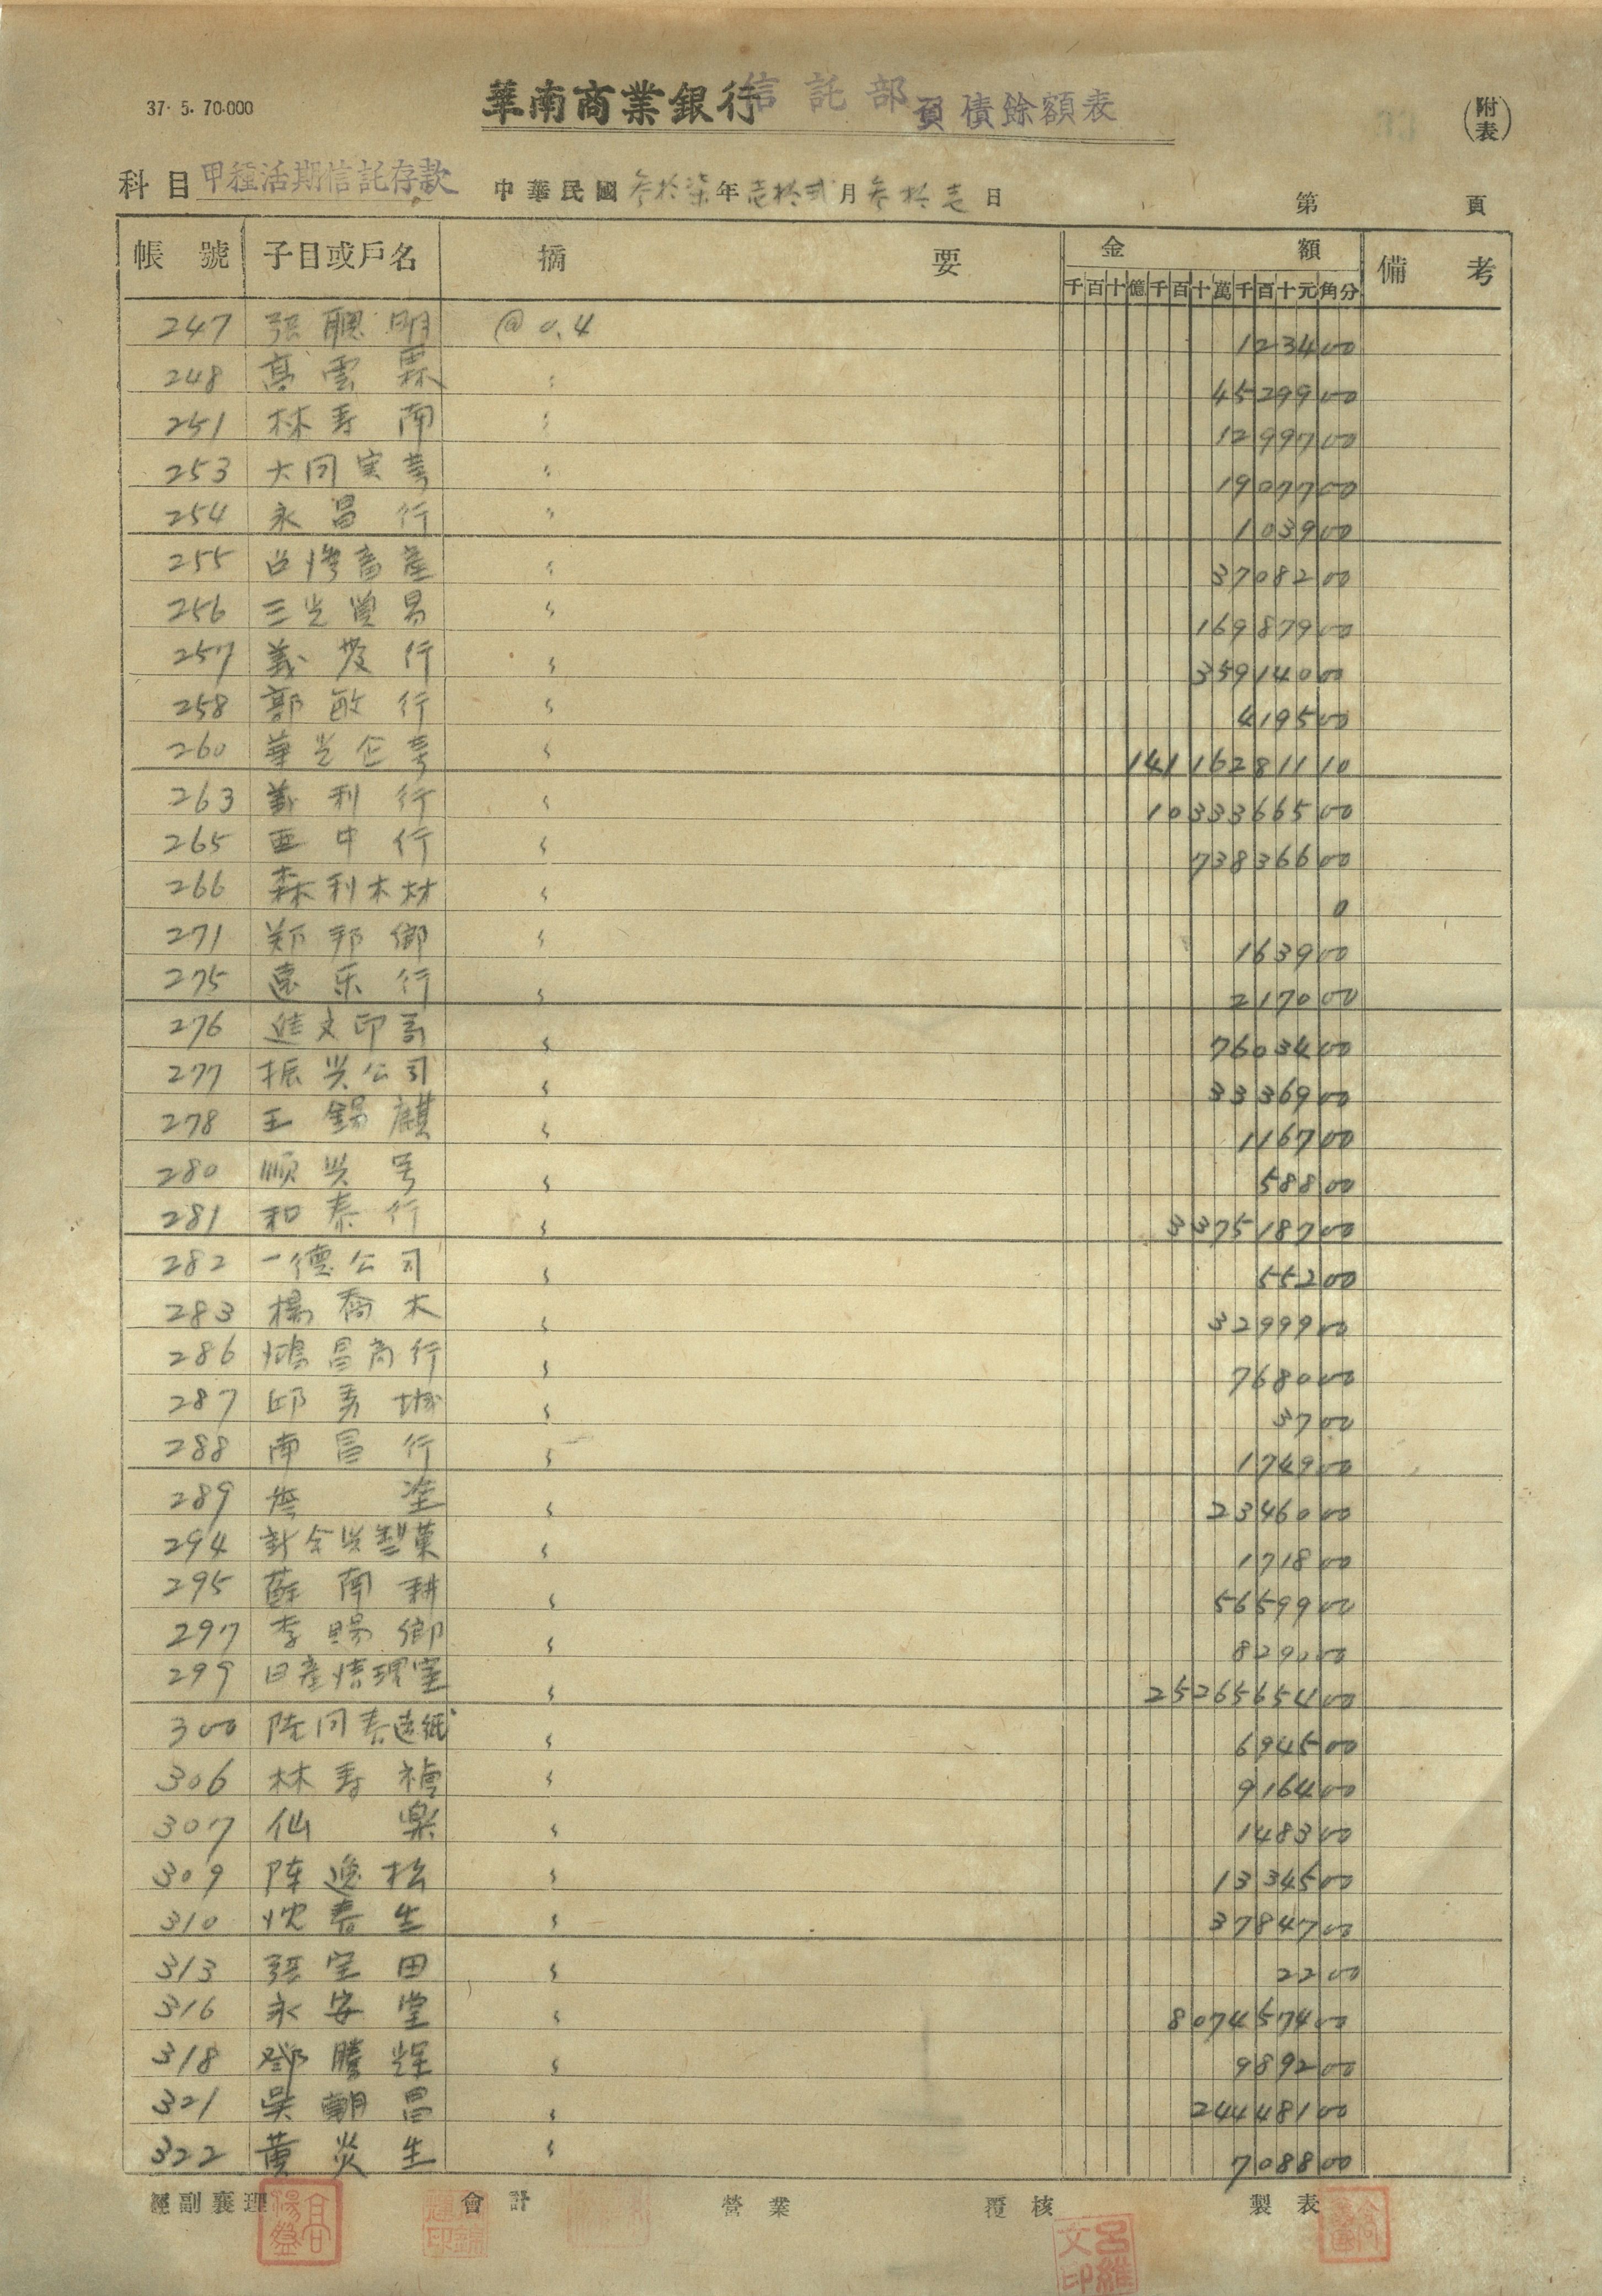 37. 5. 70.000
華南商業銀行信託部負債餘額表
(附表)
科目甲種活期信託存款 中華民國叁拾柒年壹拾弍月叁拾壱日 第 頁
帳號 子目或戶名 摘要 金額 備考
千百十億千百十萬千百十元角分
247 張聰明 @ 0.4 1234 00
248 高雲霖 〃 45299 00
251 林壽南 〃 12997 00
253 大同実業 〃 19077 00
254 永昌行 〃 1039 00
255 台灣畜産 〃 37082 00
256 三光貿易 〃 169879 00
257 義發行 〃 359140 00
258 郭敏行 〃 4195 00
260 華光企業 〃 141162811 10
263 義利行 〃 10333665 00
265 亜中行 〃 738366 00
266 森利木材 〃 0
271 郑邦卿 〃 1639 00
275 遠乐行 〃 2170 00
276 進文印 〃 76034 00
277 振兴公司 〃 33369 00
278 王錫麒 〃 1167 00
280 順兴号 〃 588 00
281 和泰行 〃 3375187 00
282 一德公司 〃 552 00
283 楊喬木 〃 32999 00
286 鴻昌商行 〃 7680 00
287 邱 城 〃 37 00
288 南昌行 〃 1749 00
289 塗 〃 23460 00
294 新合兴製菓 〃 1718 00
295 蘇南耕 〃 56599 00
297 李賜卿 〃 8290 00
299 日産清理室 〃 25265654 00
300 陸同春造紙 〃 6945 00
306 林寿禎 〃 9164 00
307 仙樂 〃 1483 00
309 陈逸松 〃 13345 00
310 沈春生 〃 37847 00
313 張宝田 〃 22 00
316 永安堂 〃 8074574 00
318 鄧騰輝 〃 9892 00
321 吴朝昌 〃 244481 00
322 黄炎生 〃 7088 00
經副襄理 會計 營業 覆核 製表
呂維文印